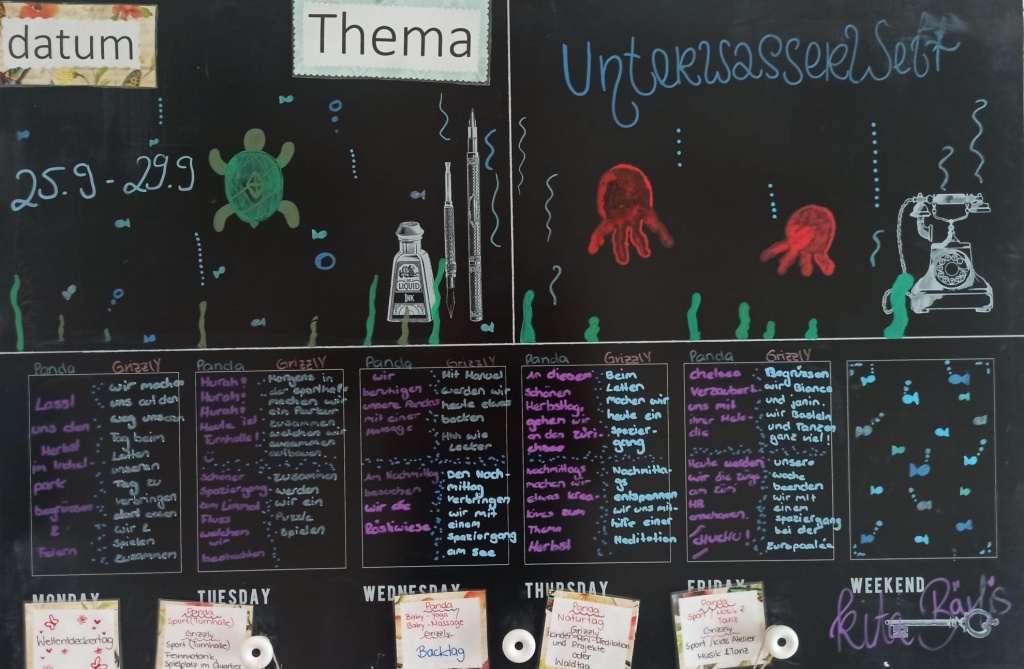 datum
Thema
Unterwasserwelt
25.9 - 29.9
LIQUID
INK
Panda Grizzly
Lasst
uns den
Herbst
im Irchel-
park
begrüssen
&
Feiern
wir machen
uns auf den
weg unseren
Tag beim
Letten
unseren
Tag zu
verbringen
dort essen
wir &
Spielen
zusammen
Panda Grizzly
Hurah!
Hurah!
Hurah!
Heute ist
Turnhalle!
Morgens in
der Sporthalle
machen wir
ein Parkour
zusammen
welchen wir
zusammen
aufbauen
Schöner
Spaziergang
zum Limmat
Fluss
welchen
wir
beobachten
zusammen
werden
wir ein
Puzzle
Spielen
Panda Grizzly
wir
beruhigen
unsere Pandas
mit einer
Massage
Mit Manuel
werden wir
heute etwas
backen
Hhh wie
Lecker
Am Nachmittag
besuchen
wir die
Bäckiwiese
Den Nach-
mittag
verbringen
wir mit
einem
spaziergang
am see
Panda Grizzly
An diesem
schönen
Herbsttag,
gehen wir
an den Züri-
chsee
Beim
Letten
machen wir
heute ein
spazier-
gang
Nachmittags
machen wir
etwas krea-
tives zum
Thema
Herbst
Nachmitta-
gs
entspannen
wir uns mit-
hilfe einer
Meditation
Panda Grizzly
chelsea
verzaubert
uns mit
ihrer Melo-
die
Begrüssen
wir Bianca
und Janin.
wir Basteln
und Tanzen
ganz viel!
Heute werden
wir die Züge
am Züri
HB
anschauen
CHUCHU!
unsere
woche
beenden
wir mit
einem
spaziergang
bei der
Europaallee
MONDAY
TUESDAY
WEDNESDAY
THURSDAY
FRIDAY
WEEKEND
Kita Bärlis
Weltentdeckertag
Panda
Sport (Turnhalle)
Grizzly
Sport (Turnhalle)
Feinmotorik
Spielplatz im Quartier
Panda
Baby-Yoga
Baby-Massage
Grizzly
Backtag
Panda
Naturtag
Grizzly
Kinder-Mini-Meditation
und Projekte
oder
Waldtag
Panda
Sport/Musik &
Tanz
Grizzly
Sport/Kids Atelier
Musik & Tanz